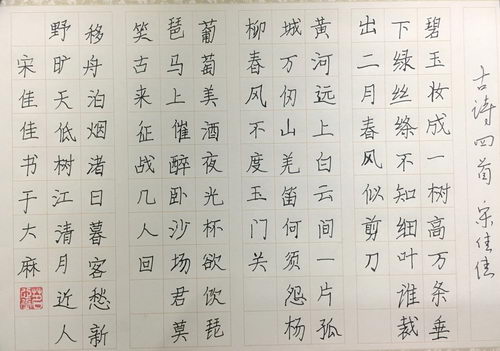 古诗四首 宋佳佳
碧玉妆成一树高万条垂
下绿丝绦不知细叶谁裁
出二月春风似剪刀
黄河远上白云间一片孤
城万仞山羌笛何须怨杨
柳春风不度玉门关
葡萄美酒夜光杯欲饮琵
琶马上催醉卧沙场君莫
笑古来征战几人回
移舟泊烟渚日暮客愁新
野旷天低树江清月近人
宋佳佳书于大麻